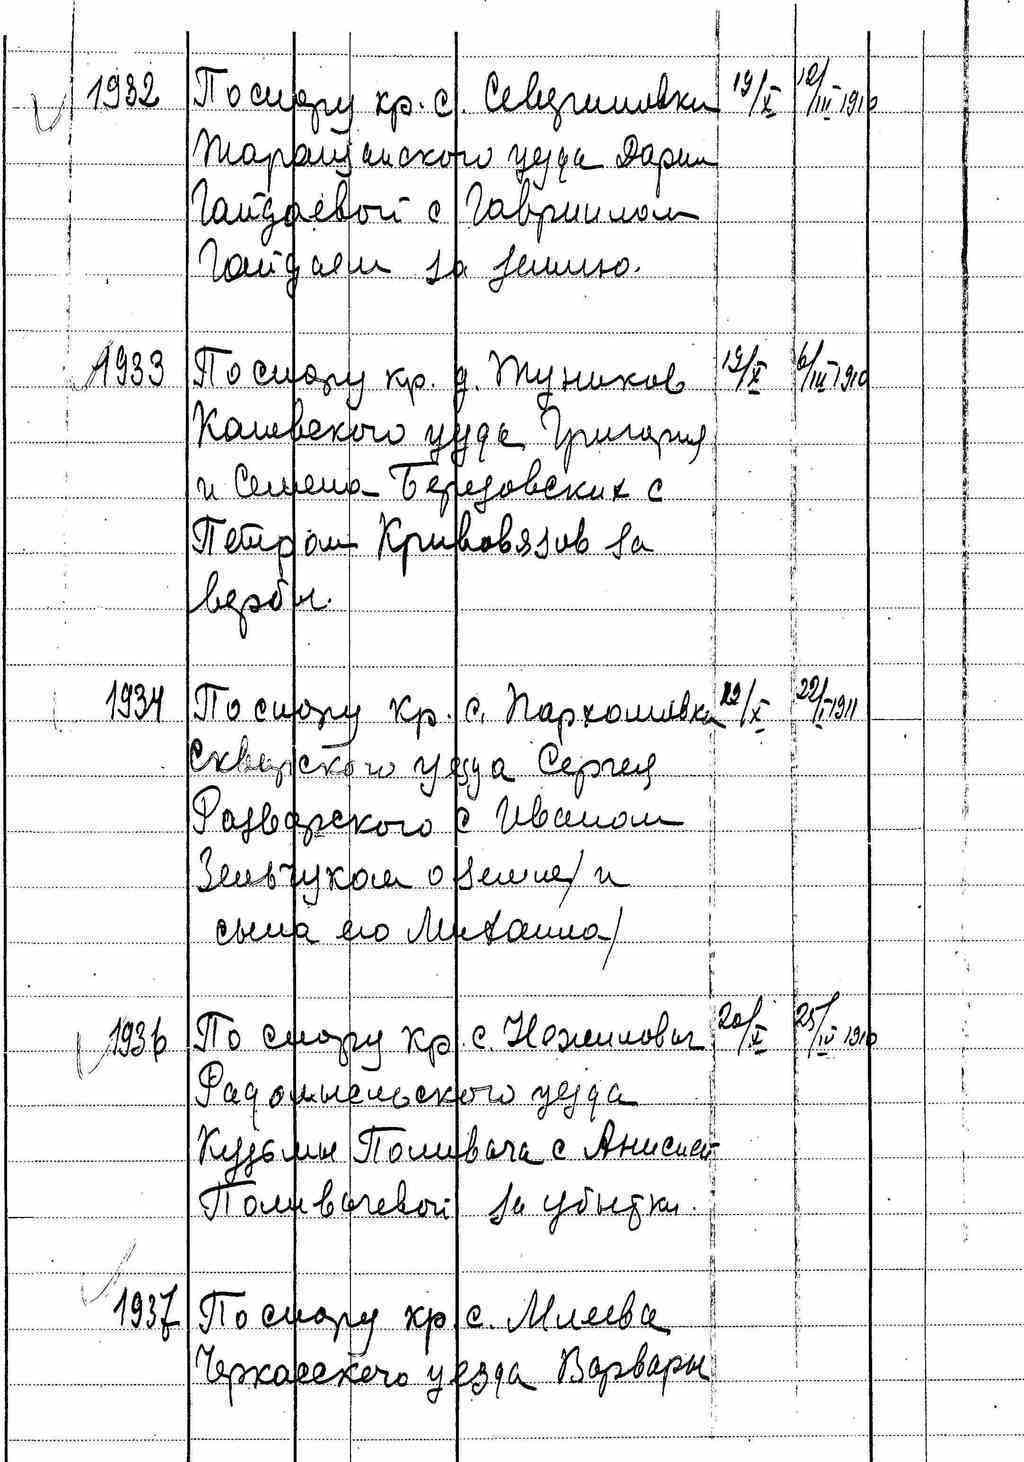 1932 По спору кр. с. Севериновки 19/X 10/III 1910
Таращанского уезда Дарии
Гайдаевой с Гавриилом
Гайдаем за землю.
1933 По спору кр. д. Жуников 19/X 6/III 1910
Каневского уезда Григория
и Семена Березовских с
Петром Кривовязов за
вербы.
1934 По спору кр. с. Пархомовка 22/X 1911
Сквирского уезда Сергея
Разварского с Иваном
Зельчуком о земле/ и
сына его Михаила/
1936 По спору кр. с. 20/X 25/IV 1910
Радомысльского уезда
Кузьмы Поливача с Анисией
Поливачевой за убытки.
1937 По спору кр. с. Млеева
Черкасского уезда Варвары